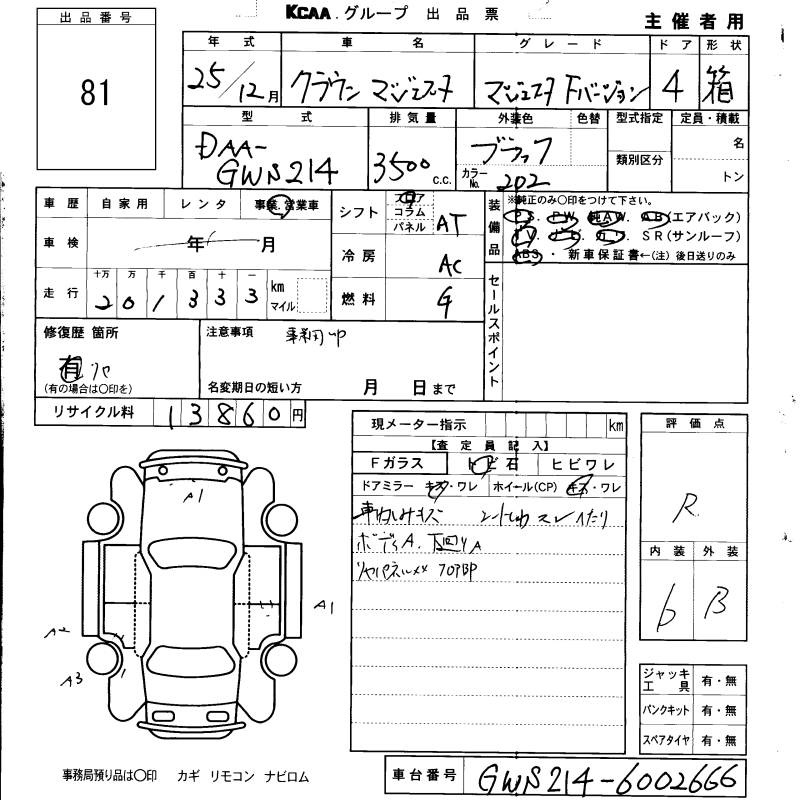 KCAA グループ 出品票
主催者用
出品番号
81
年式 車名 グレード ドア 形状
25/12月 クラウン マジェスタ マジェスタ Fバージョン 4 箱
型式 排気量 外装色 色替 型式指定 定員・積載
DAA-GWS214 3500c.c. ブラック 名
カラーNo. 202 類別区分 トン
車歴 自家用 レンタ 事業.営業車
シフト フロア コラム パネル AT
装備品
※純正のみ〇印をつけて下さい。
PS. PW. 純AW. AB(エアバック)
TV. ナビ. カワ. SR(サンルーフ)
ABS・新車保証書←(注)後日送りのみ
車検 年 月
冷房 AC
走行 十万 万 千 百 十 一
201333 km マイル
燃料 G
セールスポイント
修復歴 箇所
有
(有の場合は〇印を)
注意事項
名変期日の短い方 月 日まで
リサイクル料 13860円
現メーター指示 km
【査定員記入】
Fガラス トビ石 ヒビワレ
ドアミラー キズ・ワレ ホイール(CP) キズ・ワレ
車内しみキズ シートしわ スレ へたり
ボディA. 下回りA
評価点
R
内装 外装
6 B
A1
A1
A2
A3
ジャッキ工具 有・無
パンクキット 有・無
スペアタイヤ 有・無
事務局預り品は〇印 カギ リモコン ナビロム
車台番号 GWS214-6002666